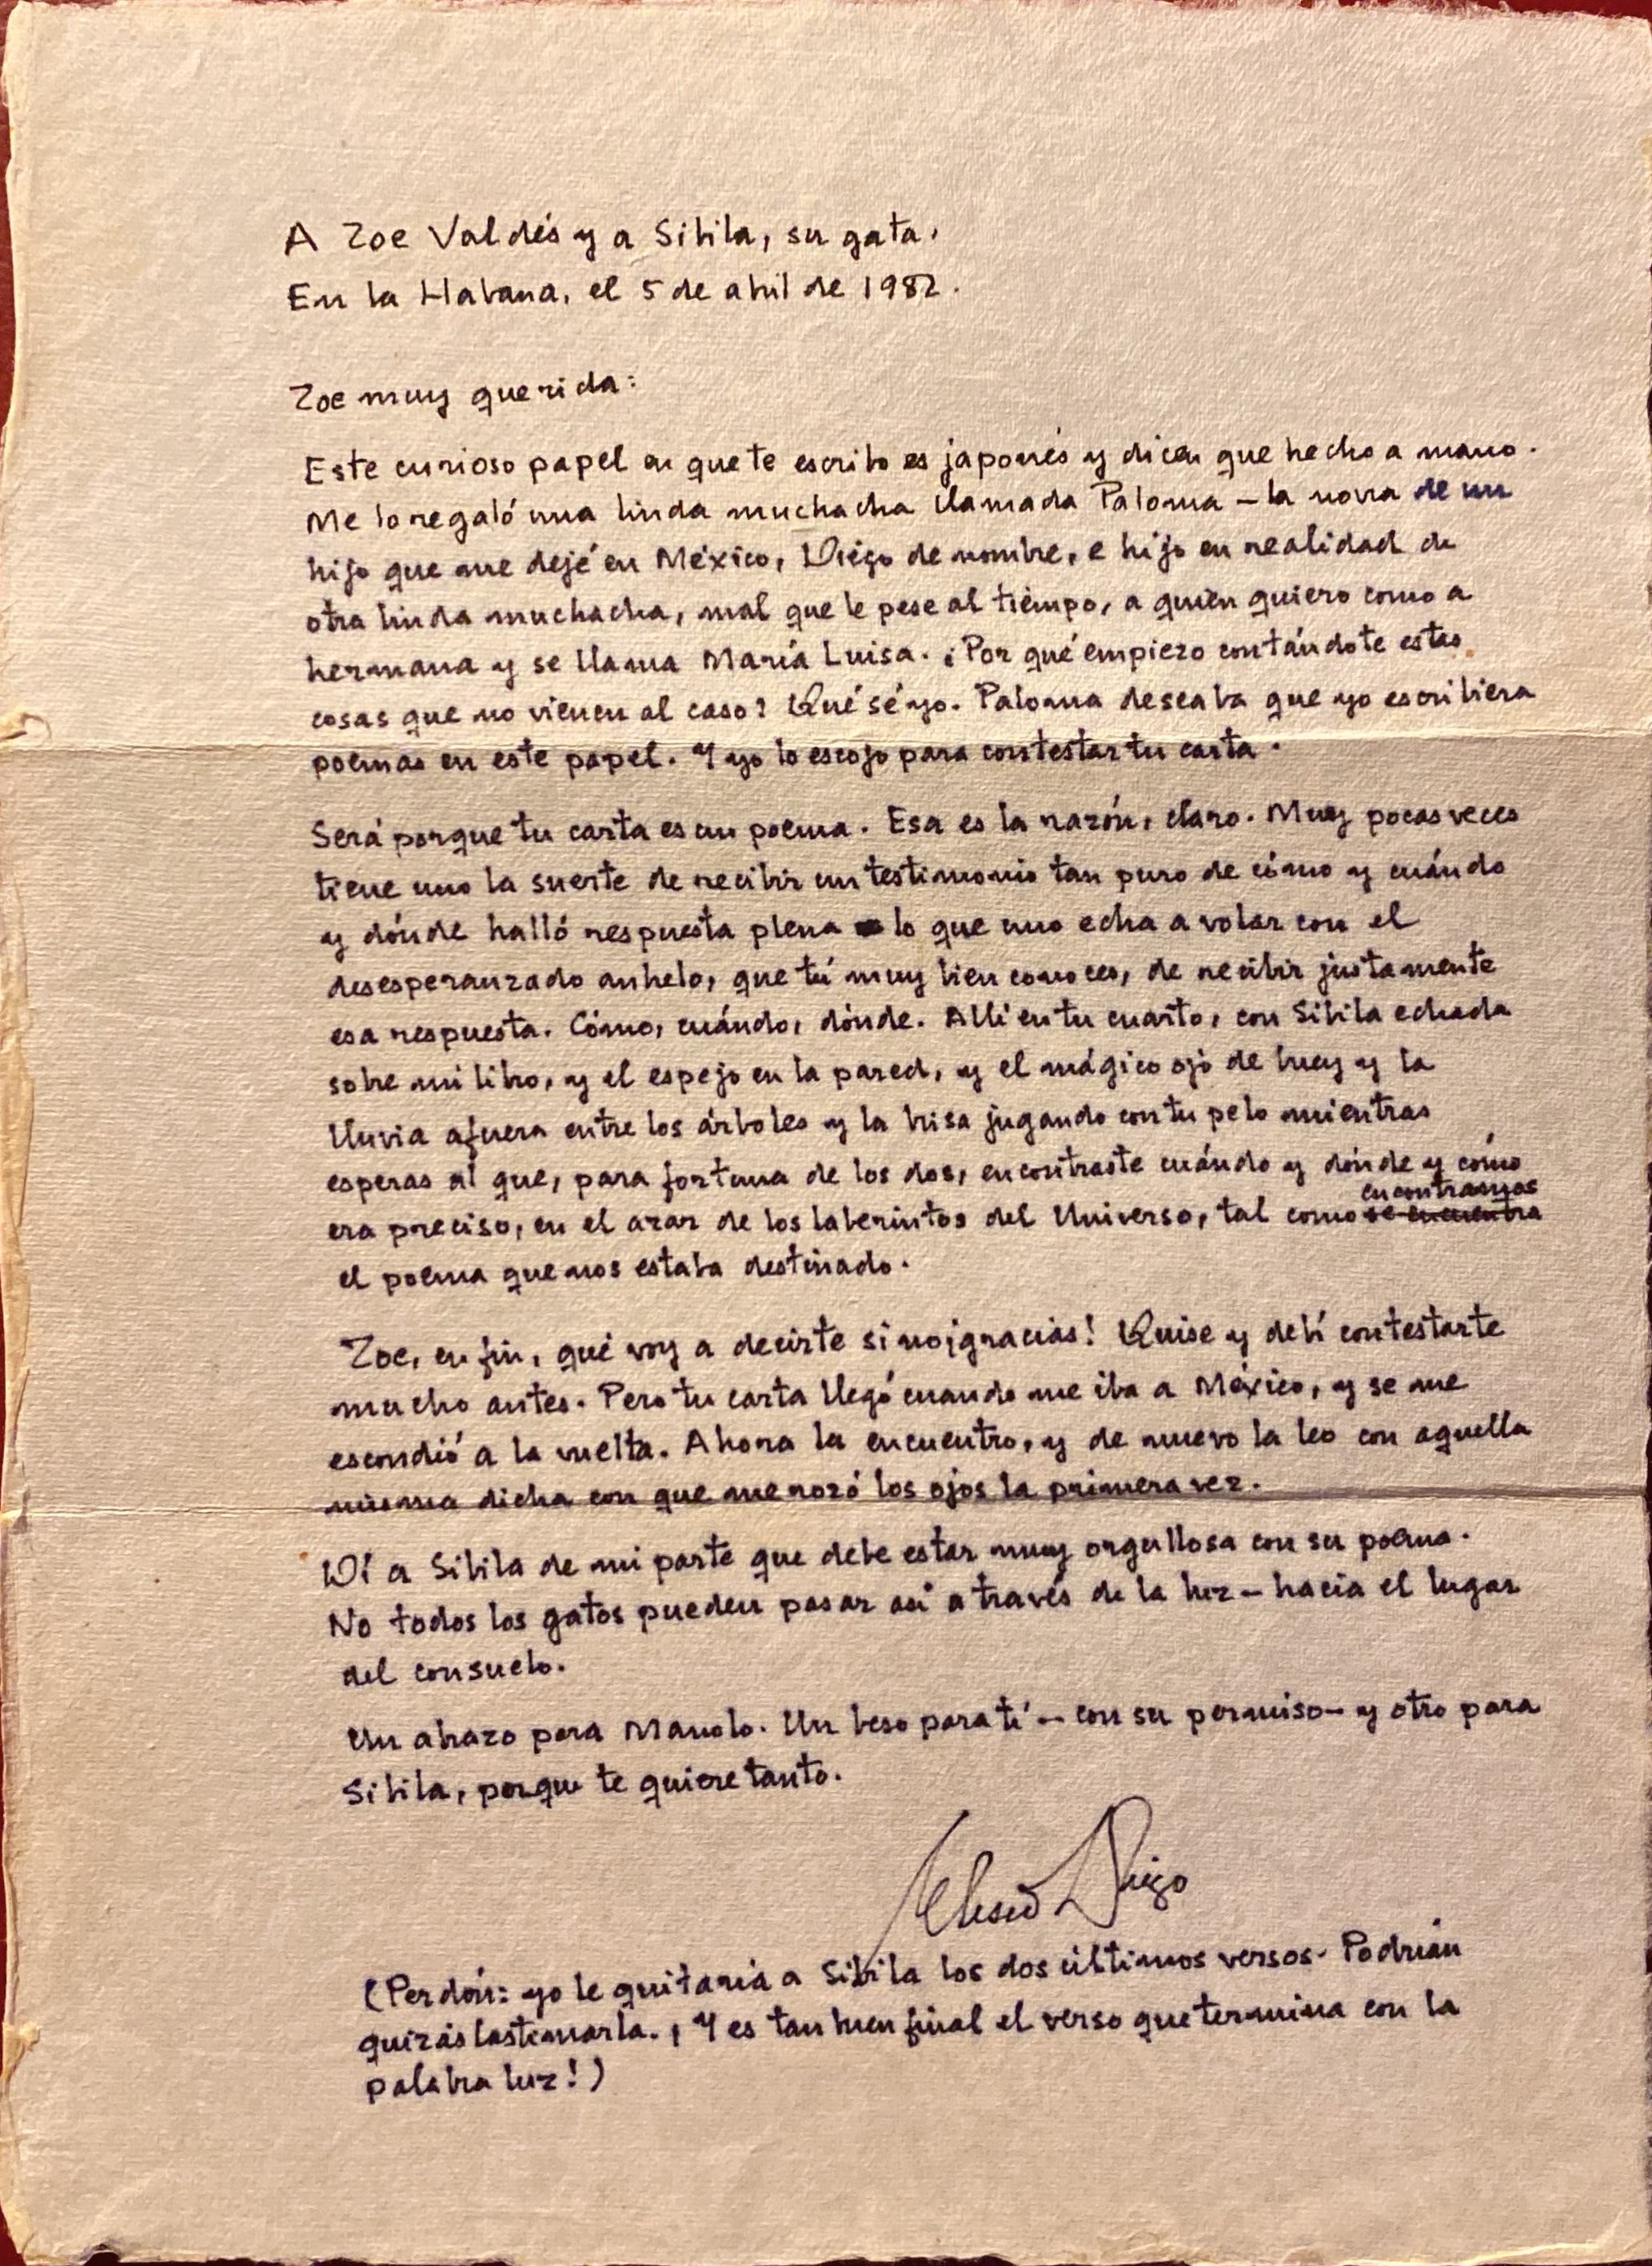 A Zoe Valdés y a Sibila, su gata.
En la Habana, el 5 de abril de 1982.
Zoe muy querida:
Este curioso papel en que te escribo es japonés y dicen que hecho a mano.
Me lo regaló una linda muchacha llamada Paloma — la novia de un
hijo que me dejé en México, Diego de nombre, e hijo en realidad de
otra linda muchacha, mal que le pese al tiempo, a quien quiero como a
hermana y se llama María Luisa. ¿Por qué empiezo contándote estas
cosas que no vienen al caso? Qué sé yo. Paloma deseaba que yo escribiera
poemas en este papel. Y yo lo escojo para contestar tu carta.
Será porque tu carta es un poema. Esa es la razón, claro. Muy pocas veces
tiene uno la suerte de recibir un testimonio tan puro de cómo y cuándo
y dónde halló respuesta plena lo que uno echa a volar con el
desesperanzado anhelo, que tú muy bien conoces, de recibir justamente
esa respuesta. Cómo, cuándo, dónde. Allí en tu cuarto, con Sibila echada
sobre mi libro, y el espejo en la pared, y el mágico ojo de buey y la
lluvia afuera entre los árboles y la brisa jugando con tu pelo mientras
esperas al que, para fortuna de los dos, encontraste cuándo y dónde y cómo
encontramos
era preciso, en el azar de los laberintos del Universo, tal como se encuentra
el poema que nos estaba destinado.
Zoe, en fin, qué voy a decirte sino ¡gracias! Quise y debí contestarte
mucho antes. Pero tu carta llegó cuando me iba a México, y se me
escondió a la vuelta. Ahora la encuentro, y de nuevo la leo con aquella
misma dicha con que me rozó los ojos la primera vez.
Dí a Sibila de mi parte que debe estar muy orgullosa con su poema.
No todos los gatos pueden pasar así a través de la luz — hacia el lugar
del consuelo.
Un abrazo para Manolo. Un beso para ti — con su permiso — y otro para
Sibila, porque te quiere tanto.
Eliseo Diego
(Perdón: yo le quitaría a Sibila los dos últimos versos. Podrían
quizás lastimarla. ¡Y es tan buen final el verso que termina con la
palabra luz!)